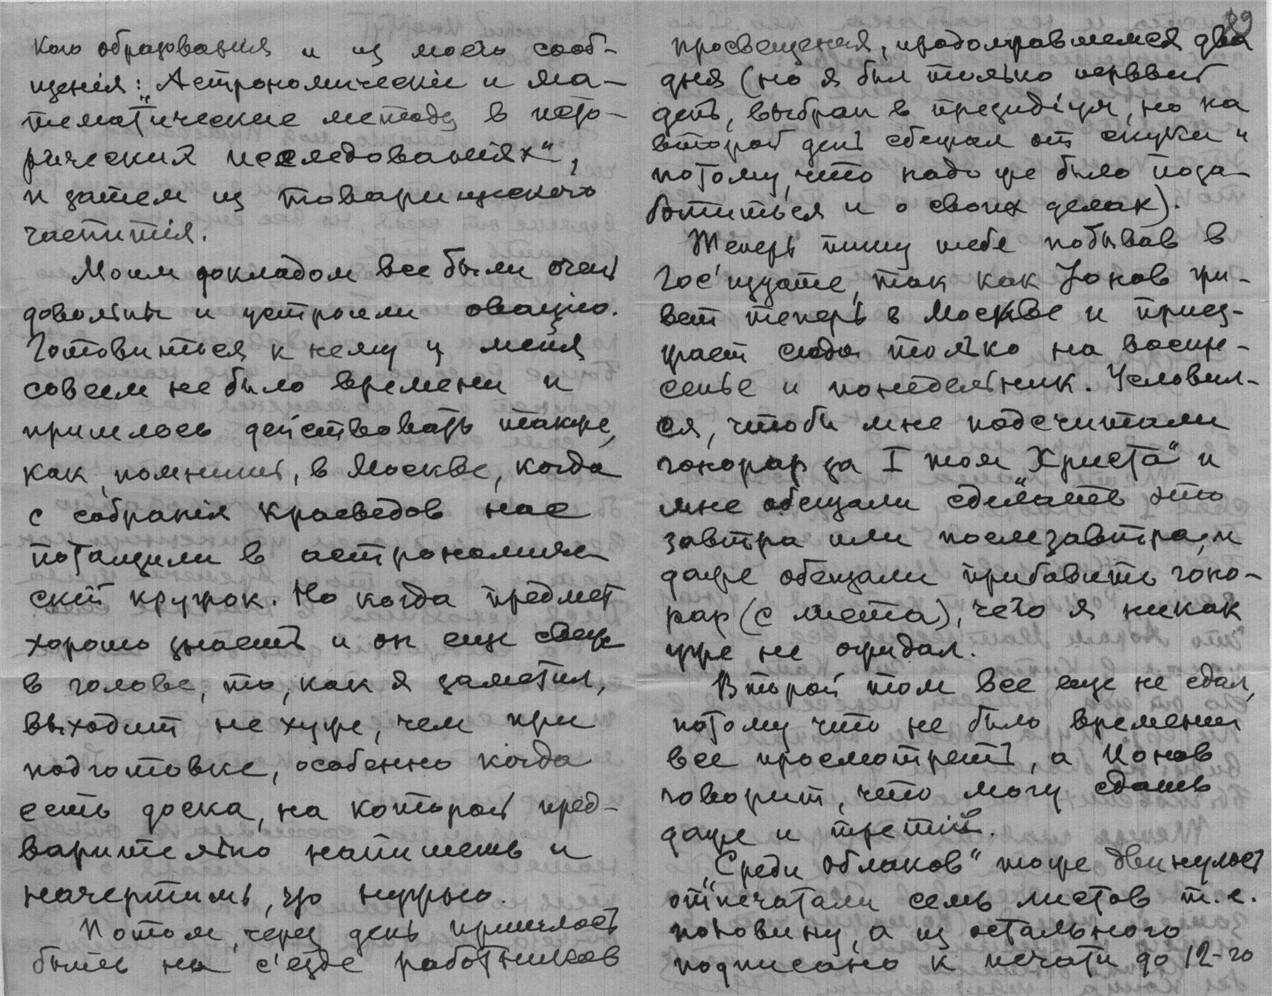 кого образования и из моего сооб-
щенія: „Астрономическіе и ма-
тематические методы в исто-
рических исследованіях",
и затем из товарищескаго
чаепитія.
Моим докладом все были очень
довольны и устроили овацію.
Готовиться к нему у меня
совсем не было времени и
пришлось действовать также,
как, помнишь, в Москве, когда
с собранія краеведов нас
потащили в астрономиче-
скій кружок. Но когда предмет
хорошо знаешь и он еще свеж
в голове, то, как я заметил,
выходит не хуже, чем при
подготовке, особенно когда
есть доска, на которой пред-
варительно напишешь и
начертишь, что нужно.
Потом, через день пришлось
быть на с'езде работников
89
просвещения, продолжавшемся два
дня (но я был только первый
день, выбран в президіум, но на
второй день сбежал от скуки и
потому, что надо же было поза-
ботиться и о своих делах).
Теперь пишу тебе побывав в
Гос'издате, так как Ионов жи-
вет теперь в Москве и приез-
жает сюда только на воскре-
сенье и понедельник. Условил-
ся, чтобы мне подсчитали
гонорар за I том „Христа" и
мне обещали сделать это
завтра или послезавтра, и
даже обещали прибавить гоно-
рар (с листа), чего я никак
уже не ожидал.
Второй том все еще не сдал,
потому что не было времени
все просмотреть, а Ионов
говорит, что могу сдать
даже и третій.
„Среди облаков" тоже двинулось
отпечатали семь листов т.е.
половину, а из остального
подписано к печати до 12-го